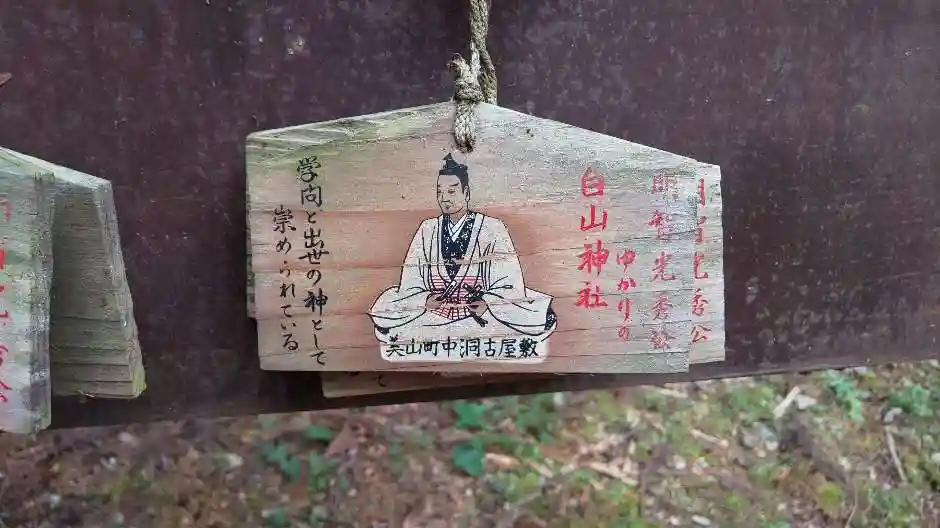 明智光秀公
ゆかりの
白山神社
学問と出世の神として
崇められている
美山町中洞古屋敷